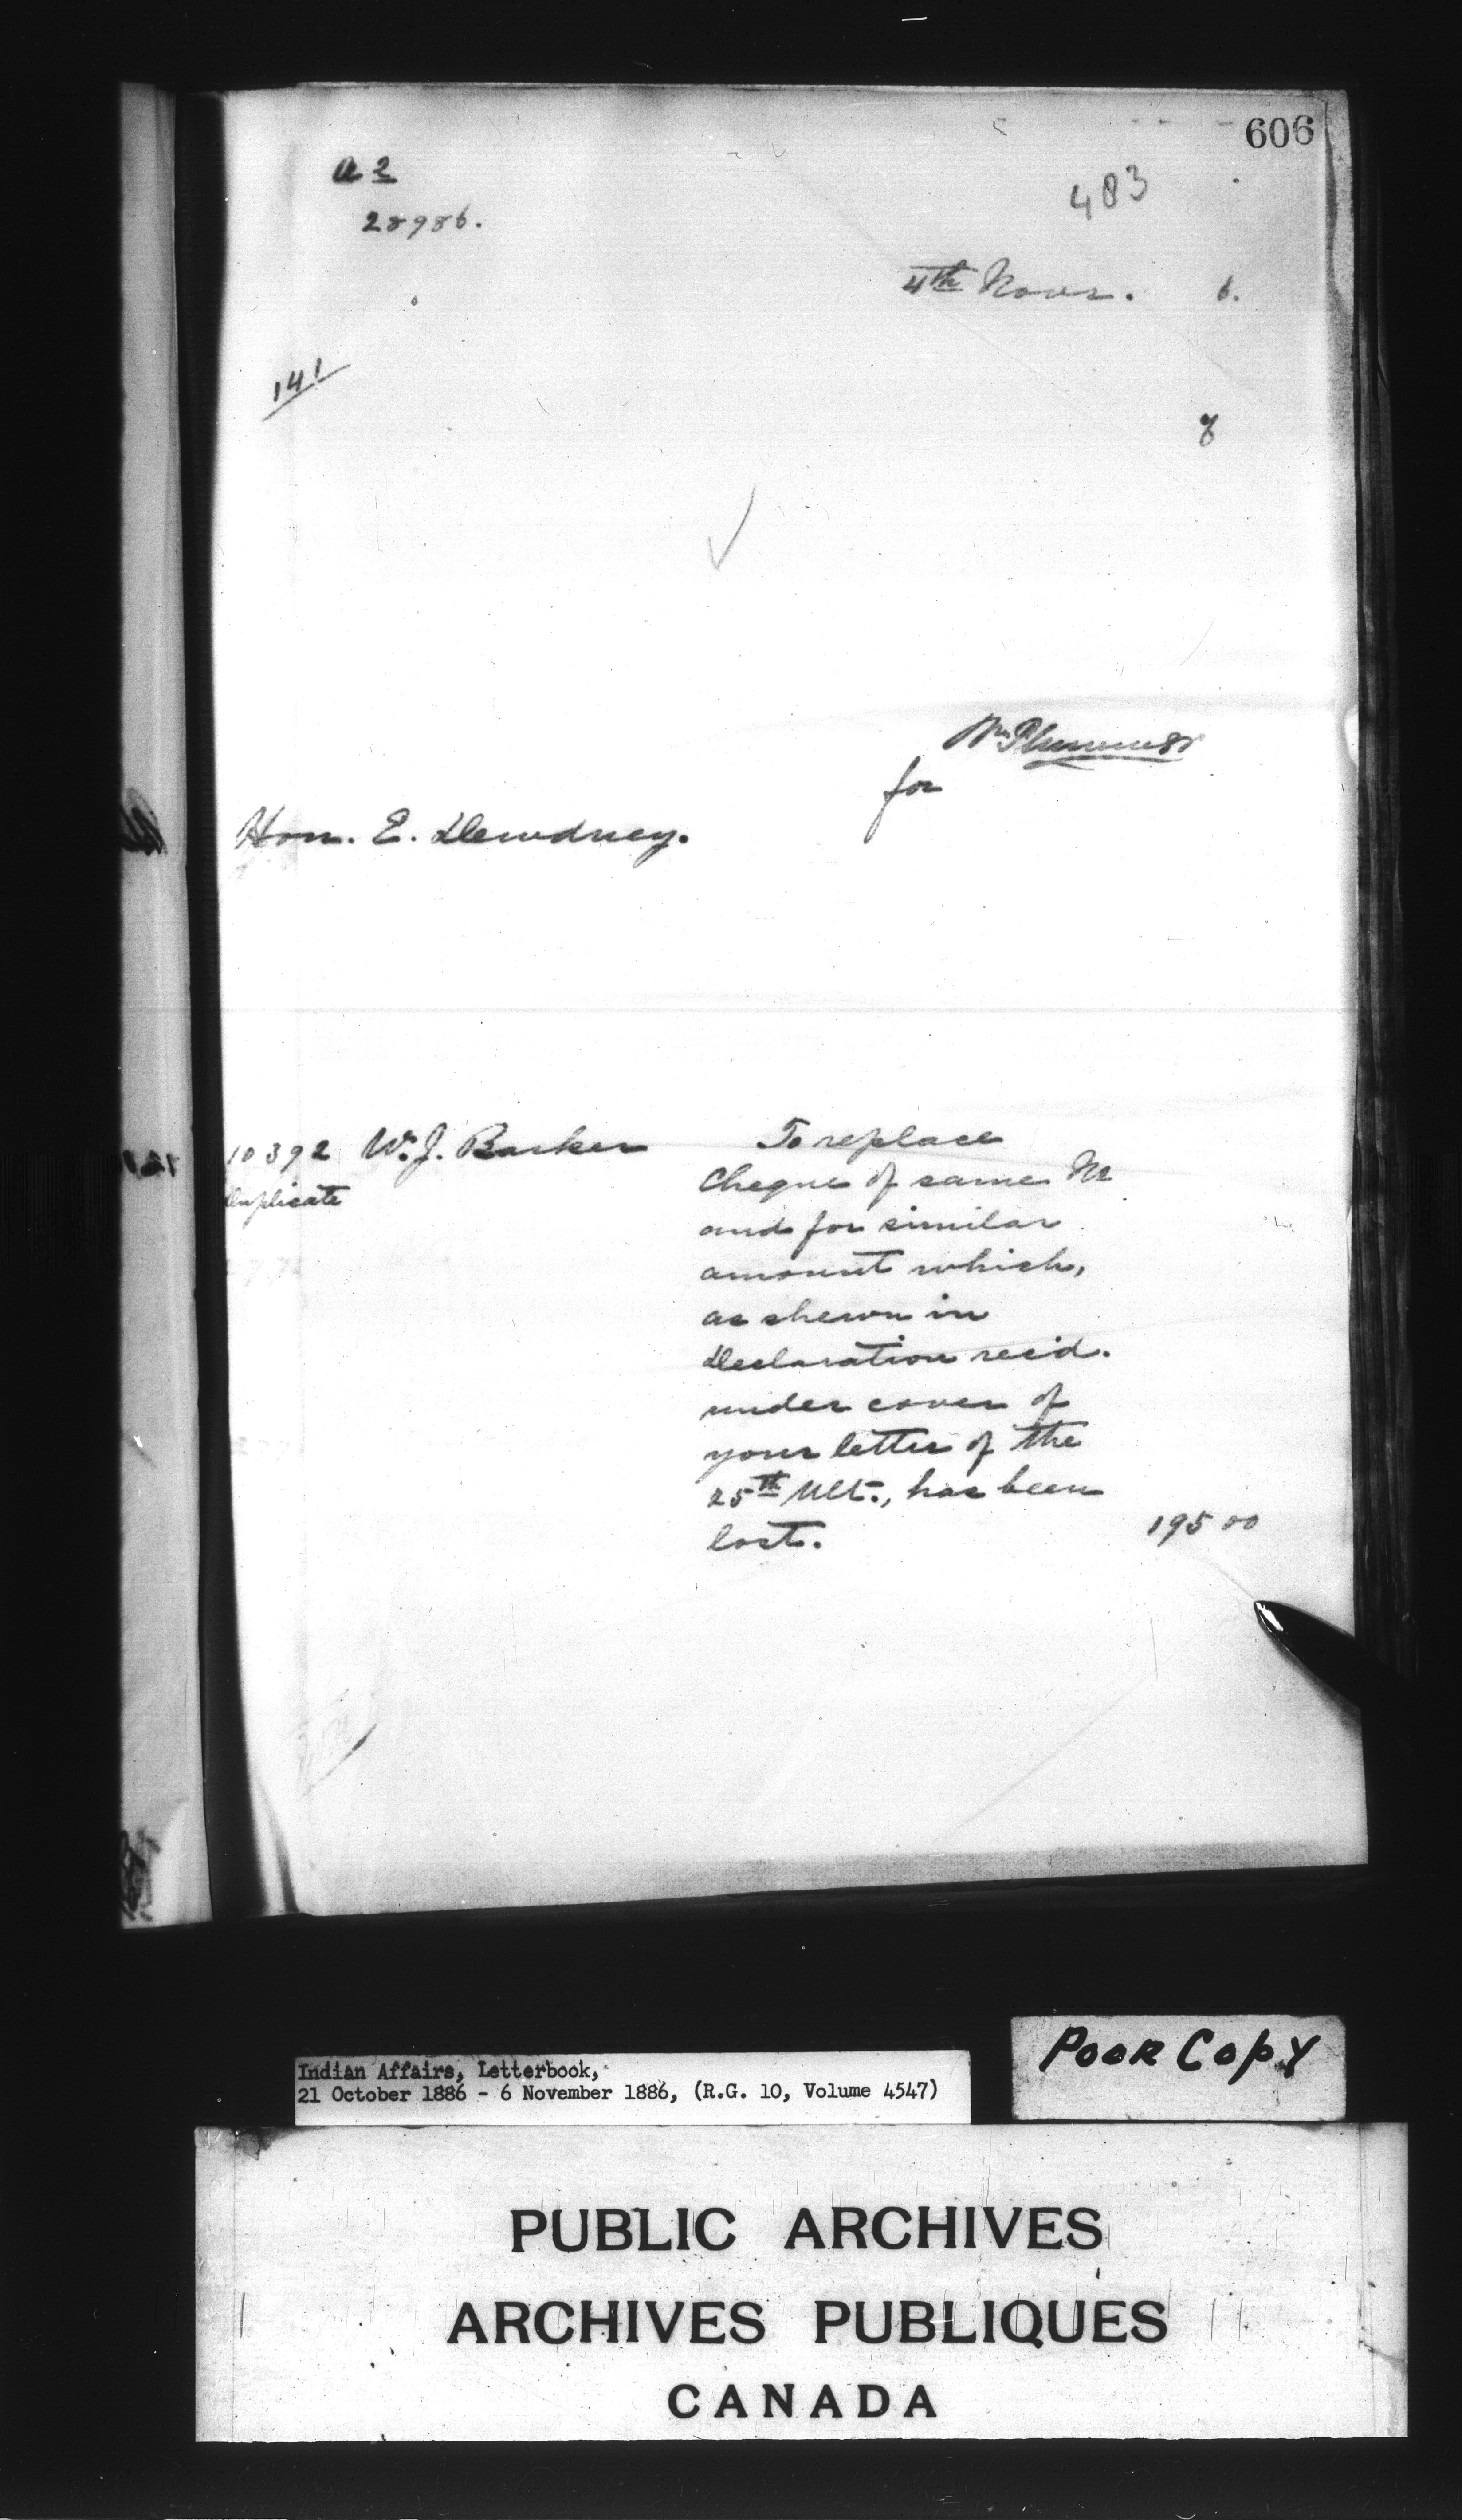 606
a 2
483
28986.
4th Novr. 6.
141
8
Wm Plummer
for
Hon. E. Dewdney.
10392 W. J. Barker To replace
Duplicate Cheque of same No
and for similar
amount which,
as shewn in
Declaration rec'd.
under cover of
your letter of the
25th Ult., has been
lost. 195 00
Poor Copy
Indian Affairs, Letterbook,
21 October 1886 - 6 November 1886, (R.G. 10, Volume 4547)
PUBLIC ARCHIVES
ARCHIVES PUBLIQUES
CANADA